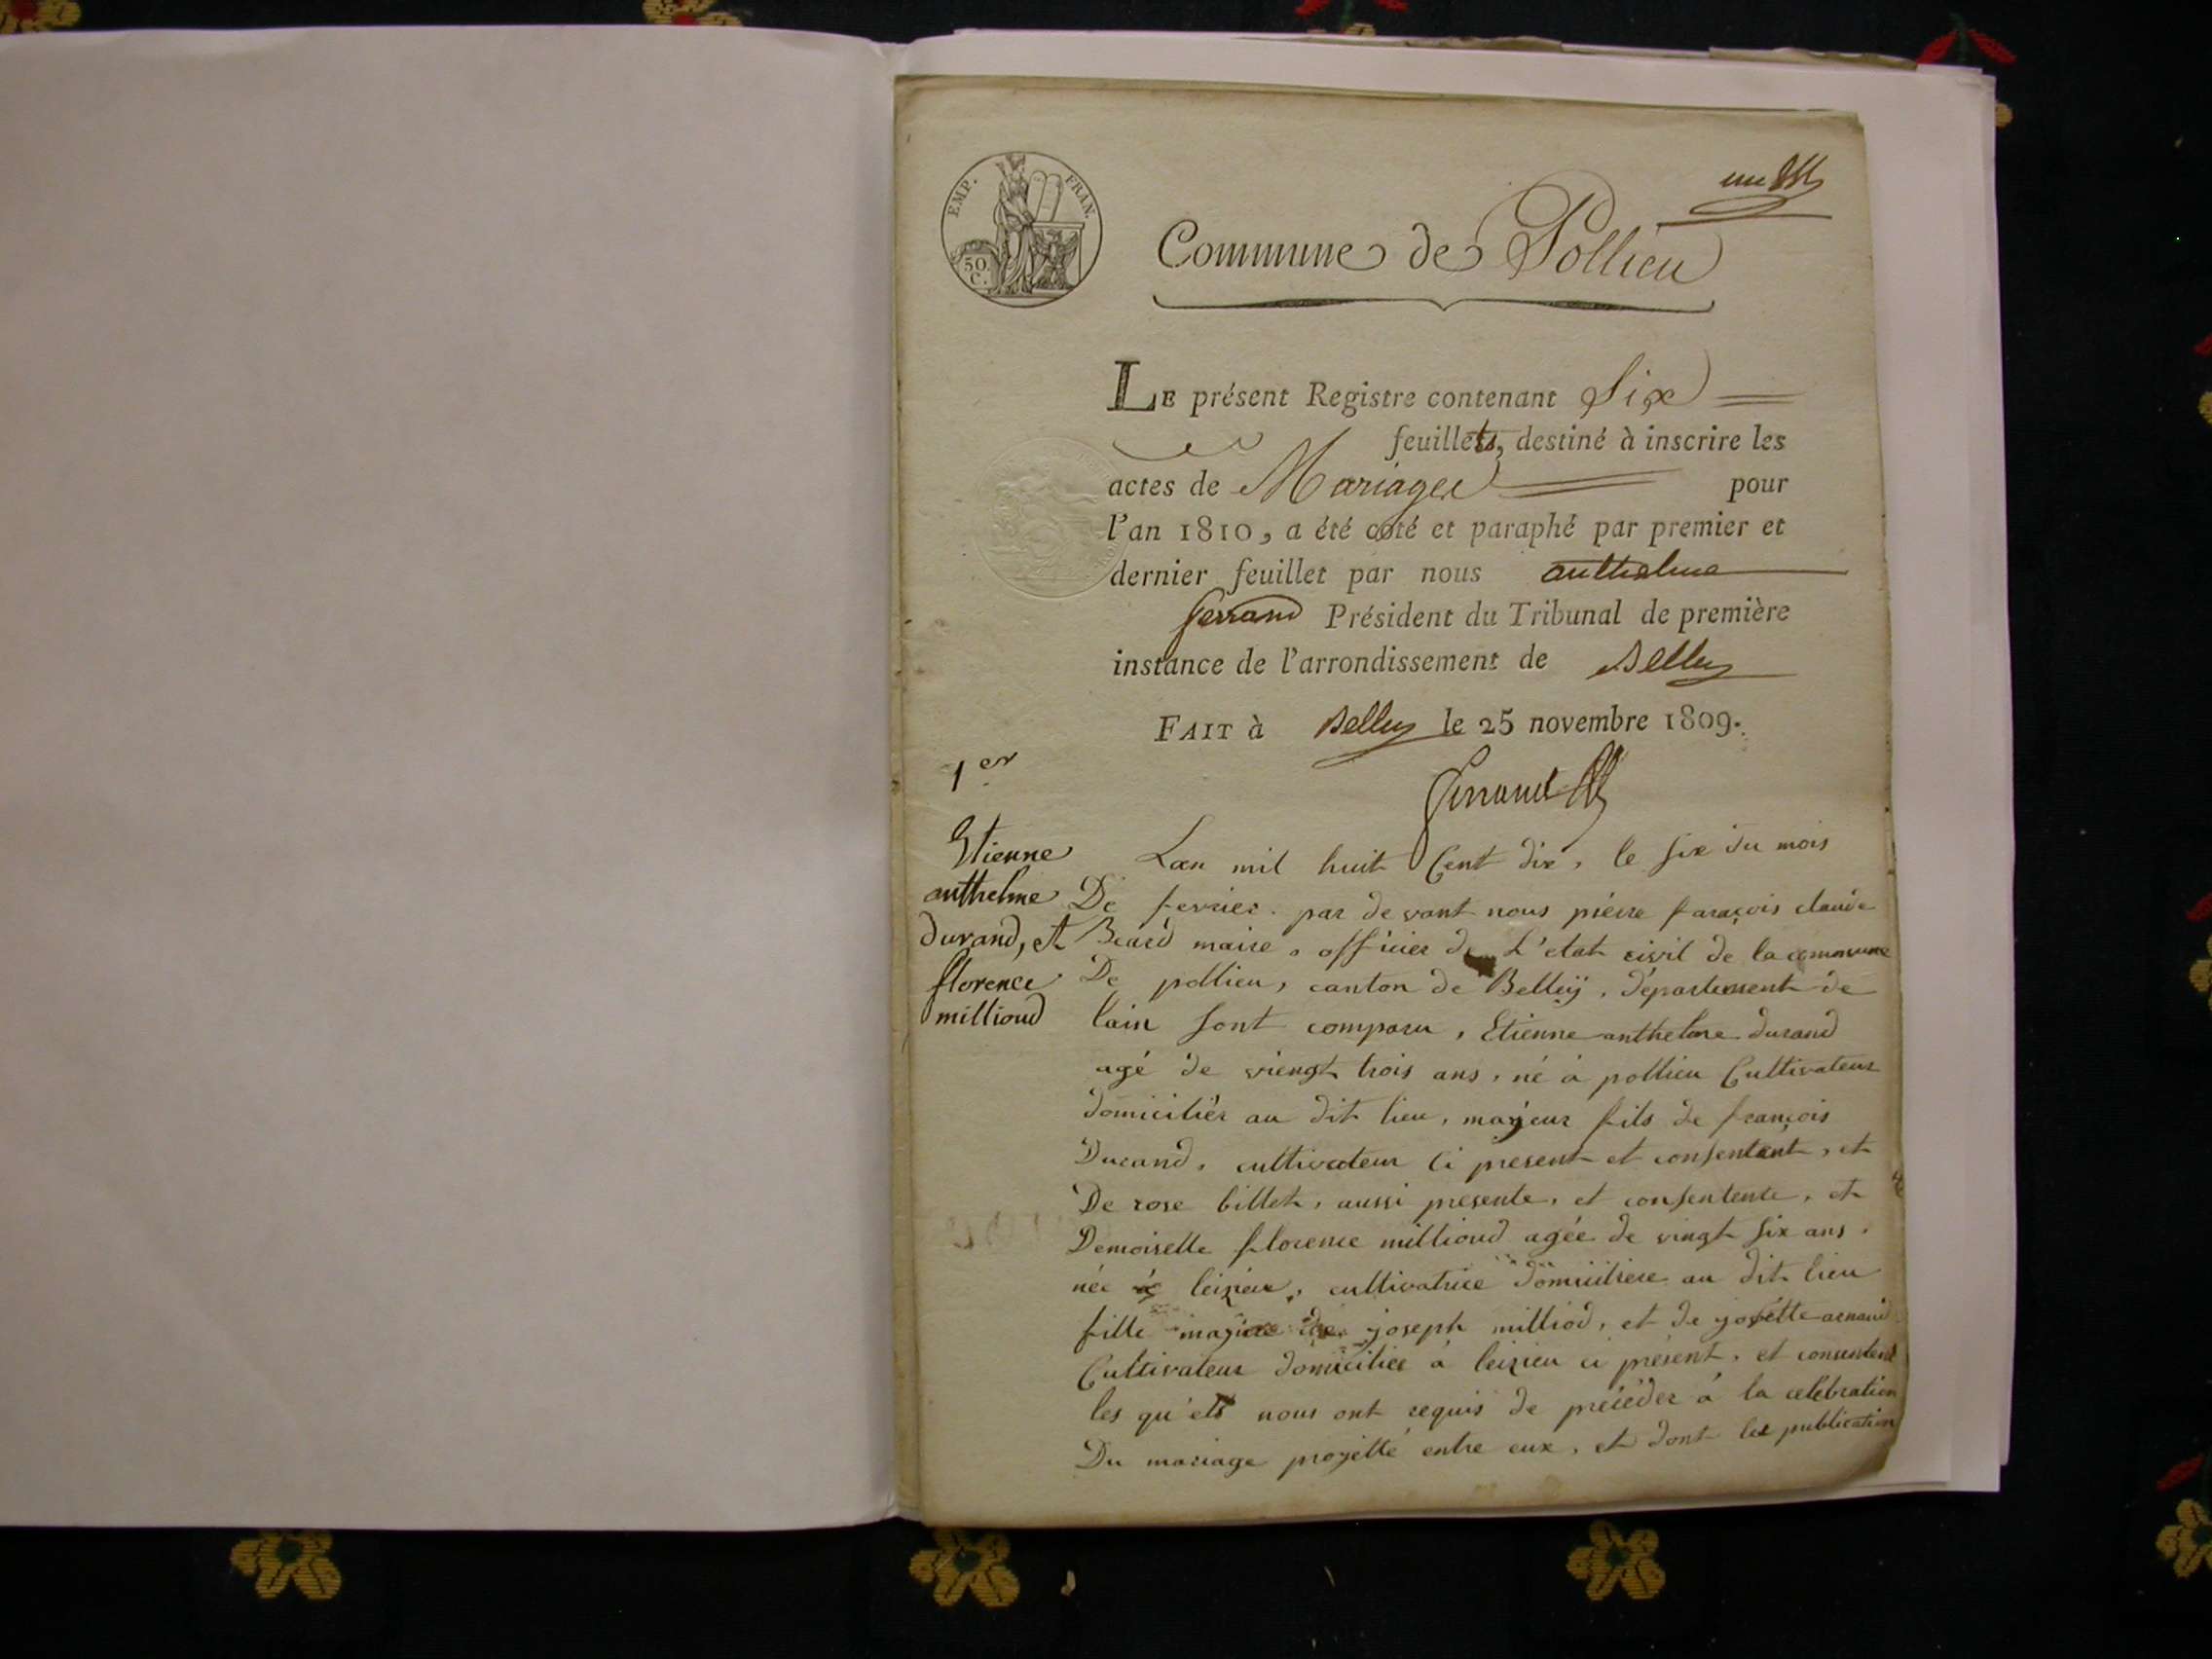 EMP. FRAN.
50.
C.
une
Commune de Pollieu
LE présent Registre contenant Six
feuillets, destiné à inscrire les
actes de Mariages pour
l'an 1810, a été coté et paraphé par premier et
dernier feuillet par nous anthelme
ferrand Président du Tribunal de première
instance de l'arrondissement de Belley
FAIT à Belley le 25 novembre 1809.
1er
ferrand
Etienne
anthelme
durand, et
florence
millioud
Lan mil huit Cent dix, le six du mois
De fevrier. par devant nous pierre françois claude
Beard maire, officier de L'etat civil de la commune
De pollieu, canton de Belley, département de
lain sont comparu, Etienne anthelme durand
agé de viengt trois ans, né à pollieu Cultivateur
domiciliér au dit lieu, majeur fils de françois
Durand, cultivateur ci present et consentant, et
De rose billet, aussi presente, et consentente, et
Demoiselle florence millioud agée de vingt six ans,
née à leizieu, cultivatrice domiciliere au dit lieu
fille majure de joseph milliod, et de josette arnaud
Cultivateur domiciliee à leizieu ci présent, et consentent
les qu'els nous ont requis de procéder à la celebration
Du mariage projetté entre eux, et dont les publication